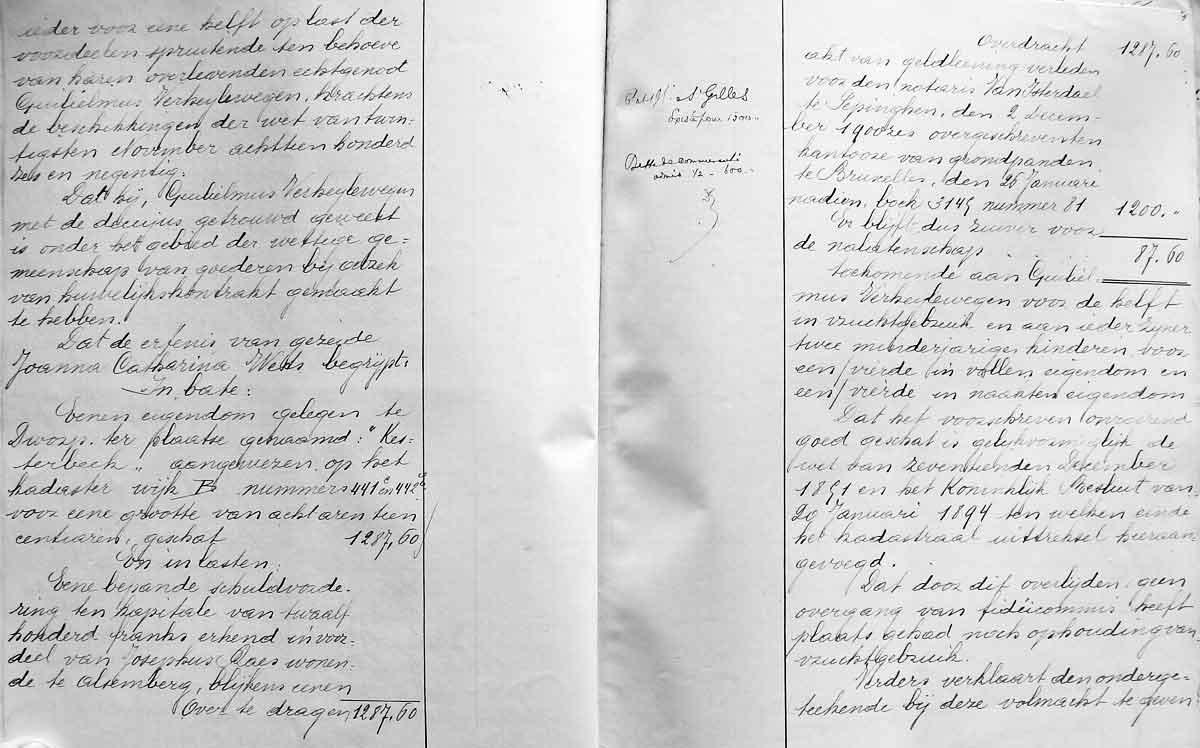 ieder voor eene helft op last der
voordeelen spruitende ten behoeve
van haren overlevenden echtgenoot
Guilielmus Verheylewegen, krachtens
de beschikkingen der wet van twin-
tigsten November achttien honderd
zes en negentig.
Dat hij, Guilielmus Verheylewegen
met de decujus getrouwd geweest
is onder het gebied der wettige ge=
meenschap van goederen bij gebrek
van huwelijkskontrakt gemaakt
te hebben.
Dat de erfenis van gezegde
Joanna Catharina Wets begrijpt:
In bate:
Eenen eigendom gelegen te
Dworp, ter plaatse genaamd: "Kes=
terbeek" aangewezen op het
kadaster wijk B nummers 441c en 442a
voor eene grootte van acht aren tien
centiaren, geschat 1287,60
En in lasten:
Eene bepande schuldvorde-
ring ten kapitale van twaalf
honderd franks erkend in voor-
deel van Josephus Claes wonen-
de te Alsemberg, blijkens eenen
Over te dragen 1287,60
St Gilles
pour 1300..
Dette
admis 1/2 - 600..
Overdracht 1287.60
akt van geldleening verleden
voor den notaris Van Isterdael
te Pepinghen, den 2 Decem-
ber 1900zes overgeschreven ten
kantoore van grondpanden
te Brussel, den 26 Januari
nadien, boek 3145 nummer 81 1200."
Er blijft dus zuiver voor
de nalatenschap . . . 87.60
toekomende aan Guiliel-
mus Verheylewegen voor de helft
in vruchtgebruik en aan ieder zijner
twee minderjarige kinderen voor
een/vierde in vollen eigendom en
een/vierde in naakten eigendom
Dat het voorschreven onroerend
goed geschat is gelijkvormiglijk de
wet van zeventienden December
1851 en het Koninklijk Besluit van
20 Januari 1894 ten welken einde
het kadastraal uittreksel hieraan
gevoegd.
Dat door dit overlijden geen
overgang van fideicommis heeft
plaats gehad noch ophouding van
vruchtgebruik.
Verders verklaart den onderge-
teekende bij deze volmacht te geven